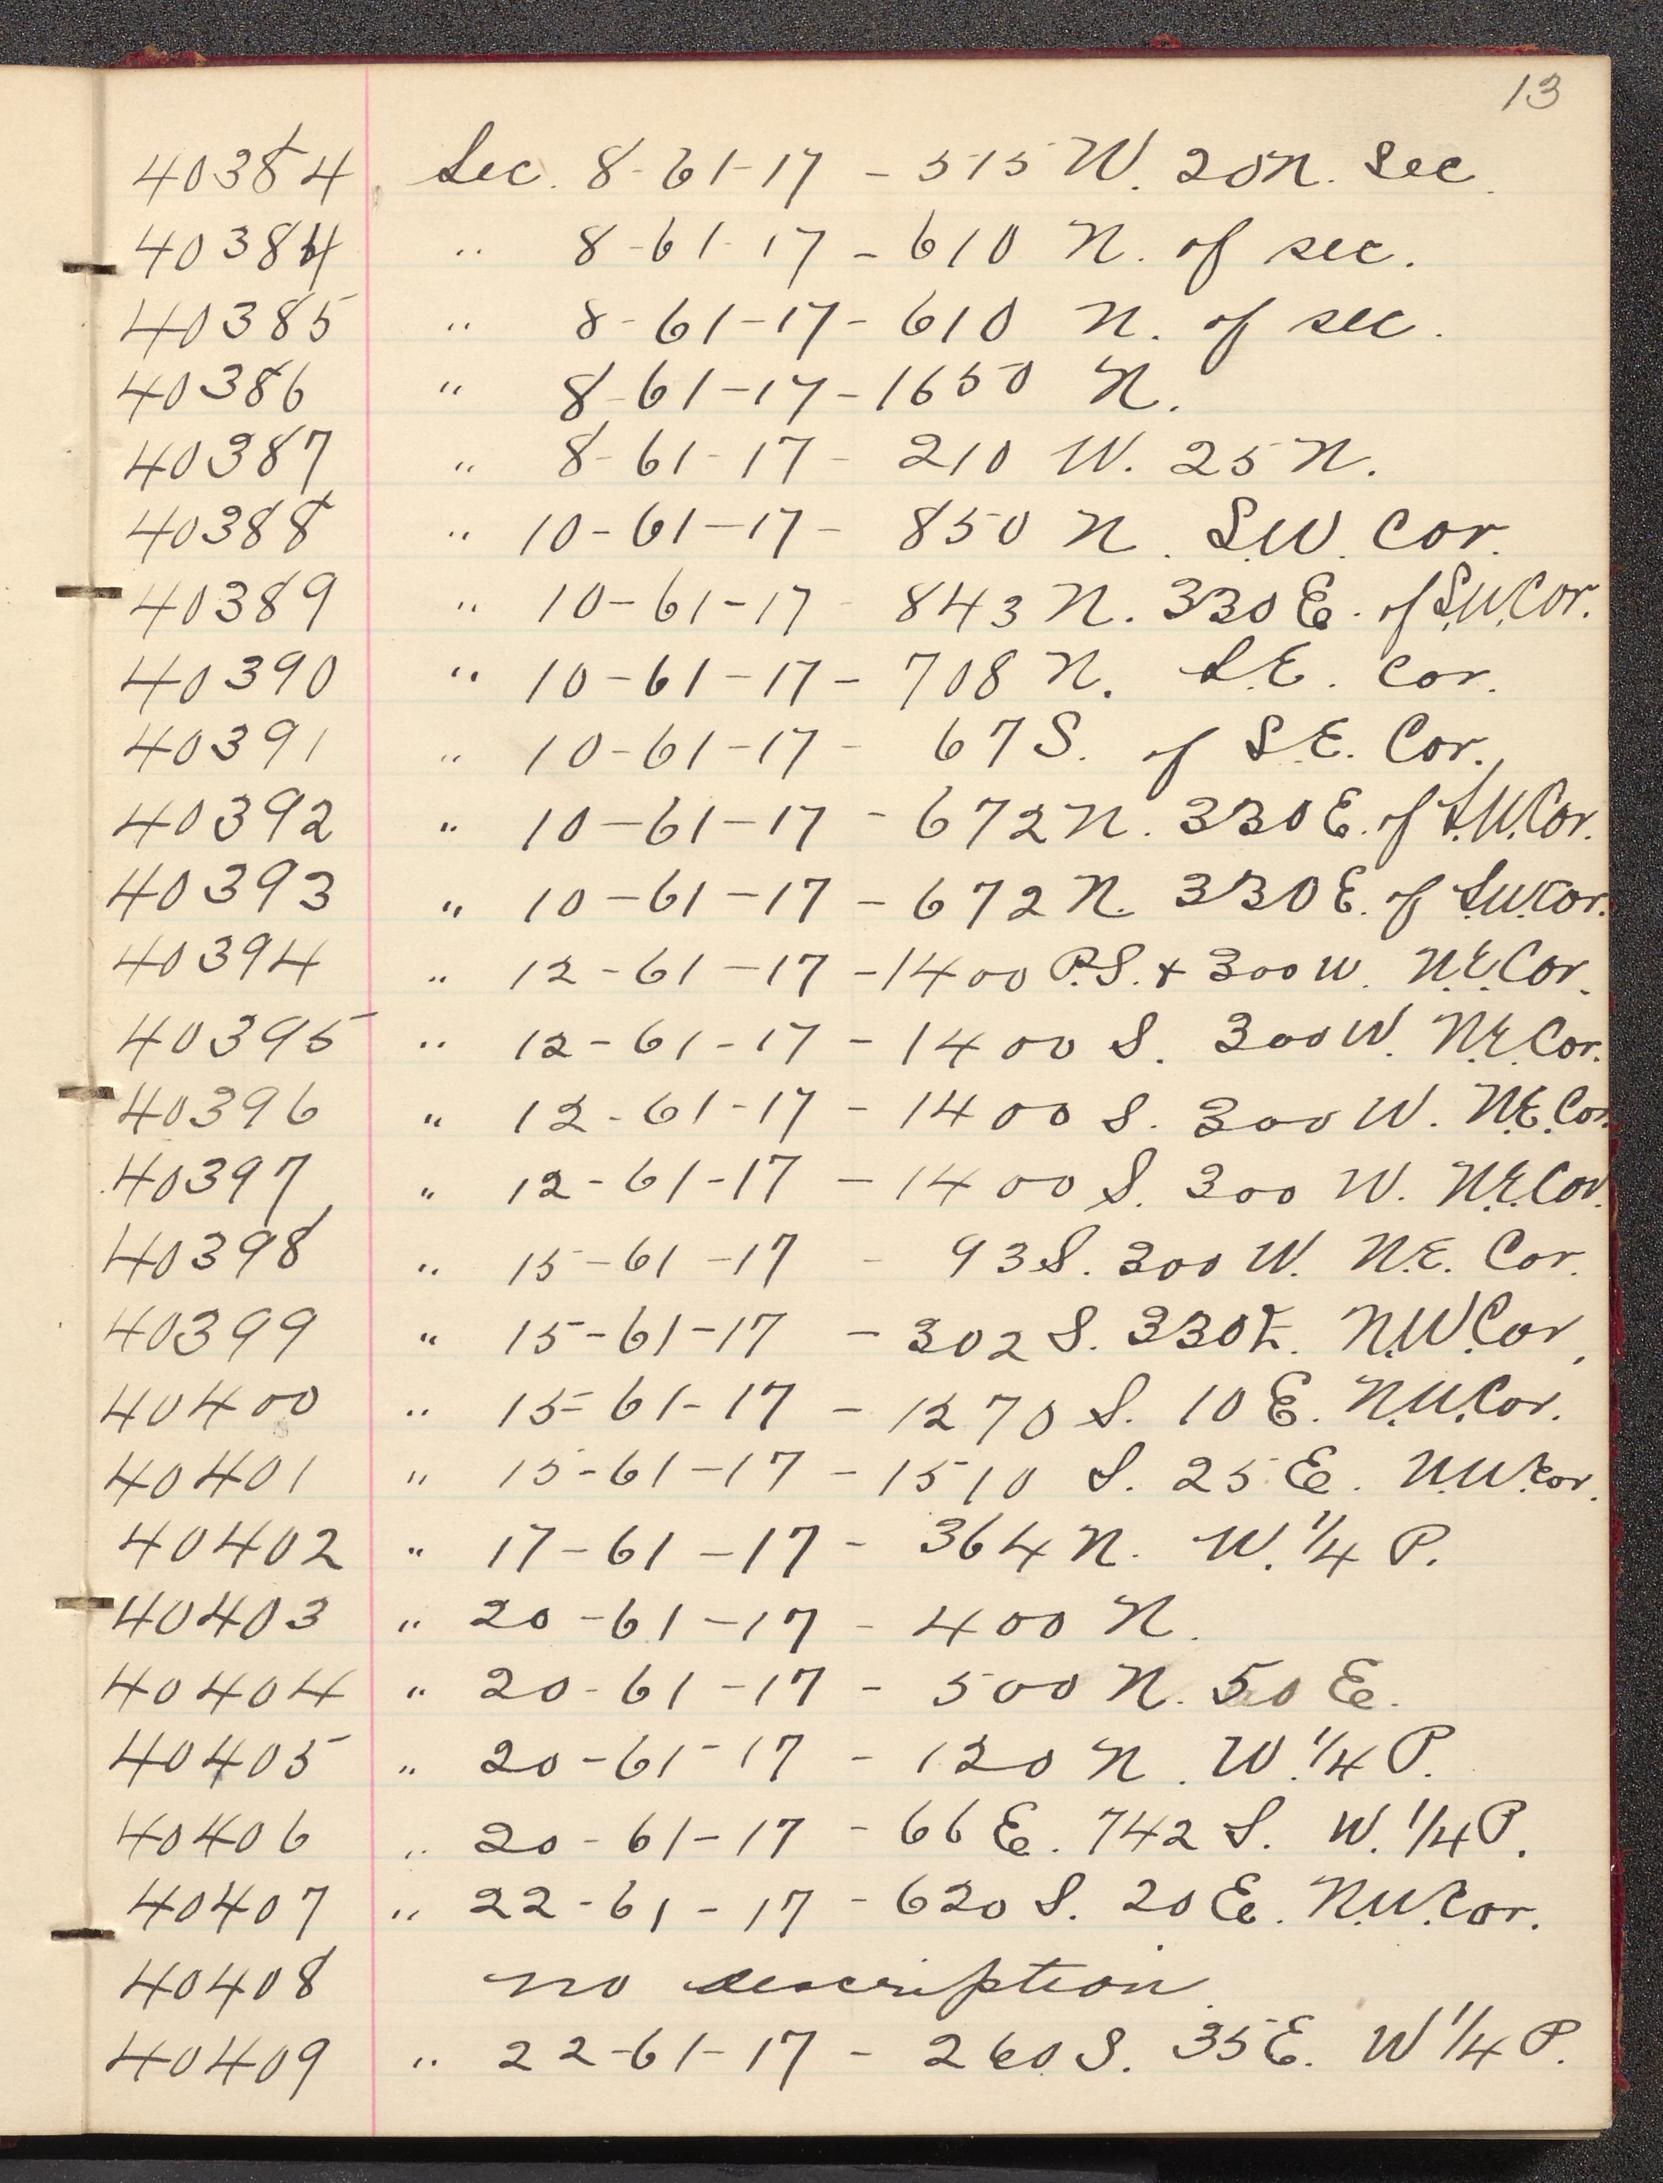 13
40384 Sec. 8-61-17 - 515 W. 20 N. Sec.
40384 " 8-61-17 - 610 N. of sec.
40385 " 8-61-17 - 610 N. of sec.
40386 " 8-61-17 - 1650 N.
40387 " 8-61-17 - 210 W. 25 N.
40388 " 10-61-17 - 850 N. S.W. Cor.
40389 " 10-61-17 - 843 N. 330 E. of S.W. Cor.
40390 " 10-61-17 - 708 N. S.E. Cor.
40391 " 10-61-17 - 67 S. of S.E. Cor.
40392 " 10-61-17 - 672 N. 330 E. of S.W. Cor.
40393 " 10-61-17 - 672 N. 330 E. of S.W. Cor.
40394 " 12-61-17 - 1400 P.S. & 300 W. N.E. Cor.
40395 " 12-61-17 - 1400 S. 300 W. N.E. Cor.
40396 " 12-61-17 - 1400 S. 300 W. N.E. Cor.
40397 " 12-61-17 - 1400 S. 300 W. N.E. Cor.
40398 " 15-61-17 - 93 S. 300 W. N.E. Cor.
40399 " 15-61-17 - 302 S. 330 E. N.W. Cor.
40400 " 15-61-17 - 1270 S. 10 E. N.W. Cor.
40401 " 15-61-17 - 1510 S. 25 E. N.W. Cor.
40402 " 17-61-17 - 364 N. W. 1/4 P.
40403 " 20-61-17 - 400 N.
40404 " 20-61-17 - 500 N. 50 E.
40405 " 20-61-17 - 120 N. W. 1/4 P.
40406 " 20-61-17 - 66 E. 742 S. W. 1/4 P.
40407 " 22-61-17 - 620 S. 20 E. N.W. Cor.
40408 no description.
40409 " 22-61-17 - 260 S. 35 E. W 1/4 P.